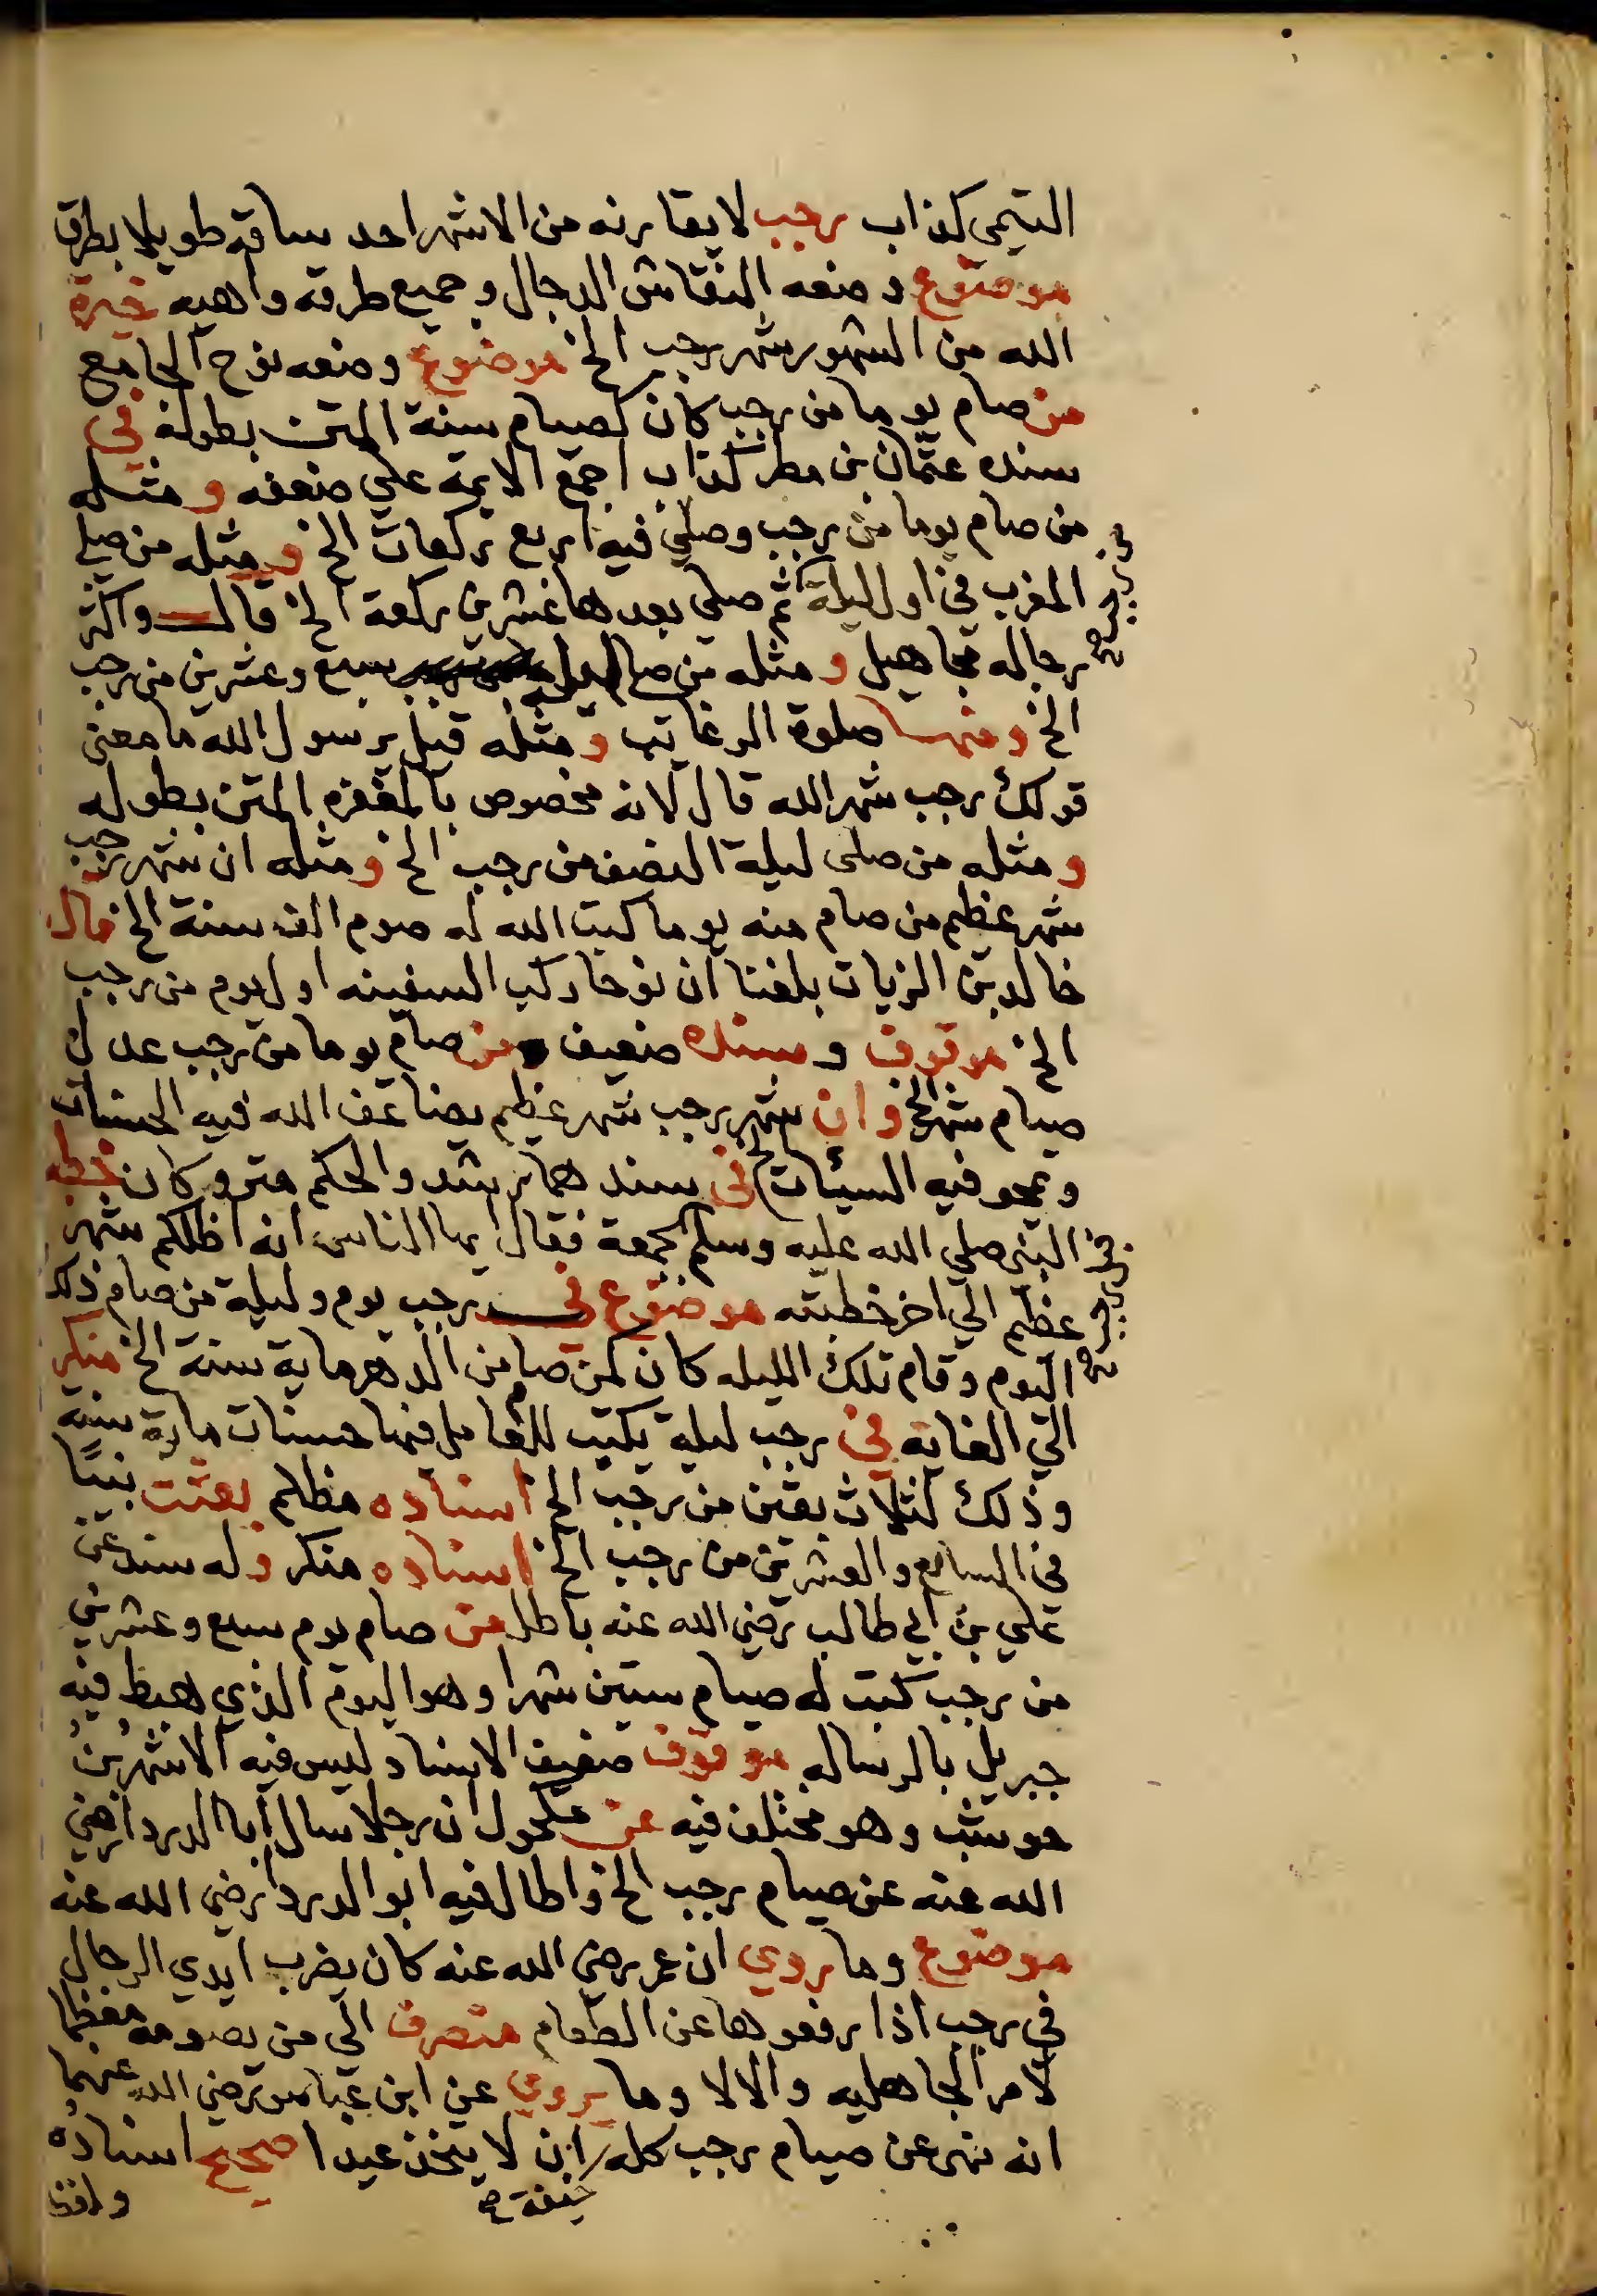 التيمي كذاب رجب لا يقارنه من الاشهر احد ساقه طويلا بطرق
موضوع وضعه النقاش الدجال وجميع طرقه واهيه خيرة
الله من الشهور شهر رجب الخ موضوع وضعه نوح الجامع
من صام يوما من رجب كان كصيام سنة المتن بطوله في
سنده عثمان بن مطر كذاب اجمع الايمة علي ضعفه ومثله
من صام يوما من رجب وصلي فيه اربع ركعات الخ ومثله من صلي
المغرب في اول ليلة ثم صلي بعدها عشرين ركعة الخ قال واكثر
رجاله مجاهيل ومثله من صام ليلة سبع وعشرين من رجب
الخ ومنها صلوة الرغائب ومثله قيل يرسول الله ما معني
قولك رجب شهر الله قال لانه مخصوص بالمغفره المتن بطوله
ومثله من صلى ليلة النصف من رجب الخ ومثله ان شهر رجب
شهر عظيم من صام منه يوما كتب الله له صوم الف سنة الخ قال
خالد بن الزيات بلغنا ان نوحا ركب السفينه اول يوم من رجب
الخ موقوف وسنده ضعيف ومن صام يوما من رجب عدل
صيام شهر الخ وان شهر رجب شهر عظيم يضاعف الله فيه الحسنات
ويمحو فيه السيئات الخ في سندهما رشد والحكم متروكان خطبه
النبي صلي الله عليه وسلم بجمعة فقال ايها الناس انه اظلكم شهر
عظيم الي اخر خطبته موضوع في رجب يوم وليلة من صام ذلك
اليوم وقام تلك الليله كان كمن صام من الدهر ماية سنة الخ منكر
الي الغايه في رجب ليلة يكتب للعامل فيها حسنات ماية سنه
وذلك لثلاث بقين من رجب الخ اسناده مظلم بعثت نبيا
في السابع والعشرين من رجب الخ اسناده منكر وله سند عن
علي بن ابي طالب رضي الله عنه باطل من صام يوم سبع وعشرين
من رجب كتب له صيام ستين شهرا وهو اليوم الذي هبط فيه
جبريل بالرساله موقوف ضعيف الاسناد ليس فيه الا شهر بن
حوشب وهو مختلف فيه عن مكحول ان رجلا سال ابا الدردا رضي
الله عنه عن صيام رجب الخ واطال فيه ابو الدردا رضي الله عنه
موضوع وما روي ان عمر رضي الله عنه كان يضرب ايدي الرجال
في رجب اذا رفعوها عن الطعام متصرف الي من يصومه معظما
لامر الجاهليه والا لا وما يروي عن ابن عباس رضي الله عنهما
انه نهى عن صيام رجب كله ان لا يتخذ عيدا صحيح اسناده
خيفة صح